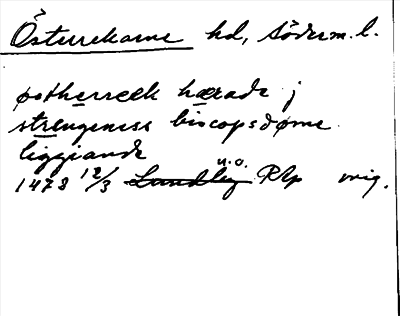 Österrekarne hd, Söderm. l.
østherreek hærade j
strengeness biscopsdøme
liggiande
u.o.
1478 12/3 Lundby RAp orig.